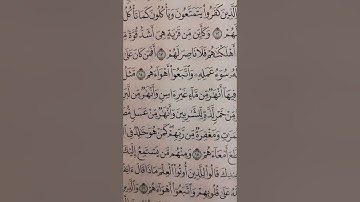 ٱلَّذِينَ كَفَرُوا۟ يَتَمَتَّعُونَ وَيَأْكُلُونَ كَمَا تَأْكُلُ
لَّهُمْ ١٢ وَكَأَيِّن مِّن قَرْيَةٍ هِىَ أَشَدُّ قُوَّةً
أَهْلَكْنَٰهُمْ فَلَا نَاصِرَ لَهُمْ ١٣ أَفَمَن كَانَ عَلَىٰ
لَهُۥ سُوٓءُ عَمَلِهِۦ وَٱتَّبَعُوٓا۟ أَهْوَآءَهُم ١٤ مَّثَلُ
فِيهَآ أَنْهَٰرٌ مِّن مَّآءٍ غَيْرِ ءَاسِنٍ وَأَنْهَٰرٌ مِّن
مِّنْ خَمْرٍ لَّذَّةٍ لِّلشَّٰرِبِينَ وَأَنْهَٰرٌ مِّنْ عَسَلٍ
وَمَغْفِرَةٌ مِّن رَّبِّهِمْ كَمَنْ هُوَ خَٰلِدٌ فِى
أَمْعَآءَهُمْ ١٥ وَمِنْهُم مَّن يَسْتَمِعُ إِلَيْكَ
قَالُوا۟ لِلَّذِينَ أُوتُوا۟ ٱلْعِلْمَ مَاذَا قَالَ
عَلَىٰ قُلُوبِهِمْ وَٱتَّبَعُوٓا۟ أَهْوَآءَهُمْ ١٦ وَٱلَّذِينَ